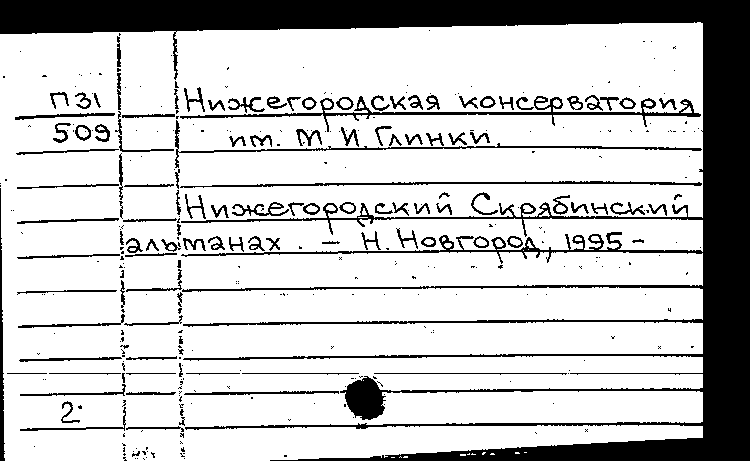 П31 Нижегородская консерватория
509 им. М. И. Глинки.
Нижегородский Скрябинский
альманах. – Н. Новгород, 1995 –
2